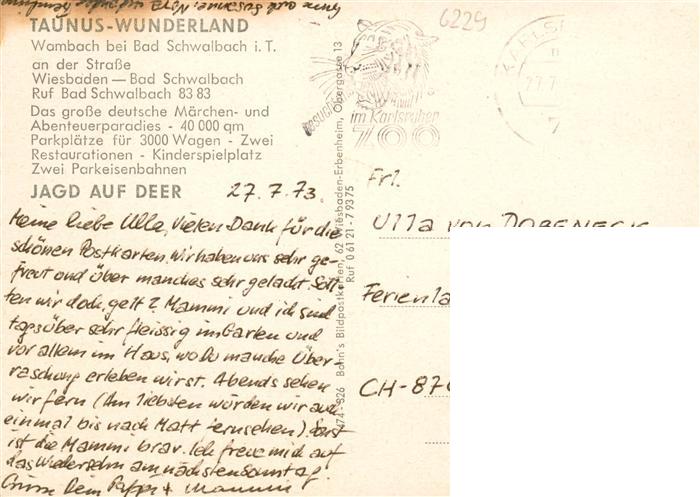 TAUNUS-WUNDERLAND
Wambach bei Bad Schwalbach i. T.
an der Straße
Wiesbaden — Bad Schwalbach
Ruf Bad Schwalbach 83 83
Das große deutsche Märchen- und
Abenteuerparadies - 40 000 qm
Parkplätze für 3000 Wagen - Zwei
Restaurationen - Kinderspielplatz
Zwei Parkeisenbahnen
JAGD AUF DEER
27.7.73.
Meine liebe Ulla, Vielen Dank für die
schönen Postkarten, wir haben uns sehr ge-
freut und über manches sehr gelacht. Soll
ten wir doch, gell? Mammi und ich sind
tagsüber sehr fleissig im Garten und
vor allem im Haus, wo Du manche Über-
raschung erleben wirst. Abends sehen
wir fern (Am liebsten würden wir auch
einmal bis nach Matt fernsehen). Sonst
ist die Mammi brav. Ich freue mich auf
das Wiedersehn am nächsten Sonntag.
Dein Pappi + Mammi
474-826 Bohn's Bildpostkarten, 62 Wiesbaden-Erbenheim, Obergasse 13
Ruf 0 61 21 - 7 93 75
6229
im Karlsruher
ZOO
KARLS
27.7
7
Frl.
Ulla von DOBENECK
Ferienla
CH-87